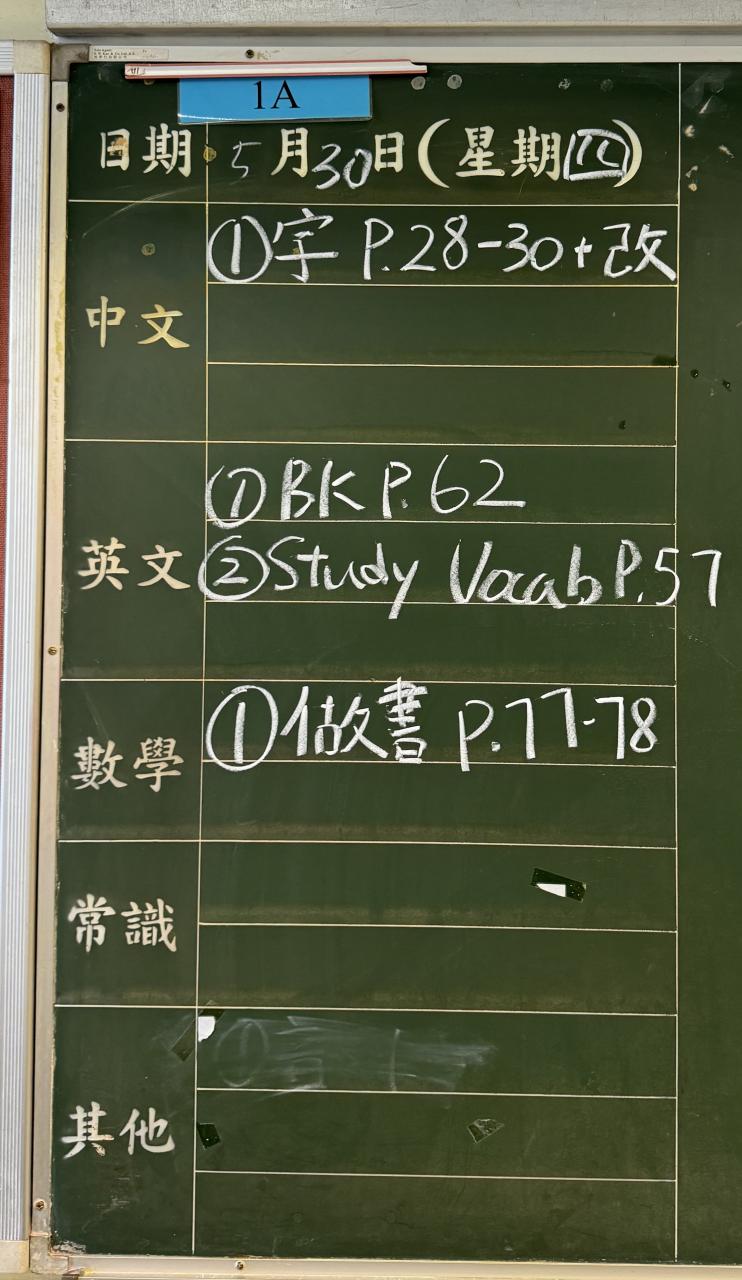 1A
日期 5月30日(星期四)
中文 ①字 P.28-30+改
英文 ①BK P.62
②Study Vocab P.57
數學 ①做書 P.77-78
常識
其他